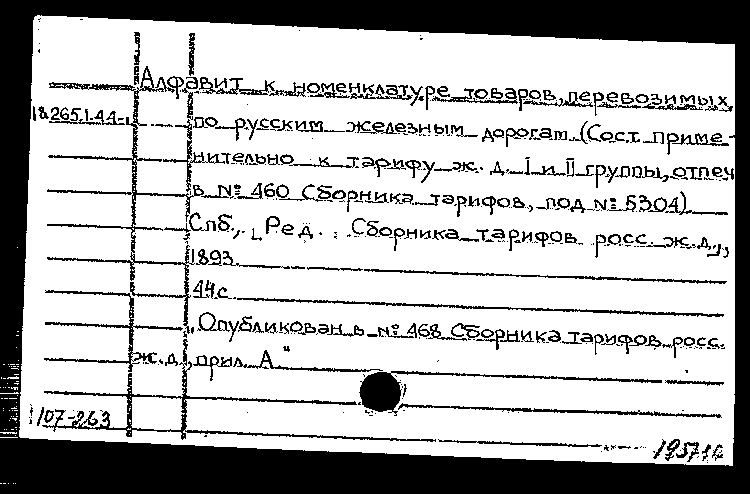 Алфавит к номенклатуре товаров, перевозимых
18.265.1.44-
по русским железным дорогам (Сост. приме-
нительно к тарифу ж. д. I и II группы, отпеч
в № 460 Сборника тарифов, под № 5304).
Спб., [Ред. Сборника тарифов росс. ж.д.],
1893.
44 с
"Опубликован в № 468 Сборника тарифов росс.
ж.д., прил. А."
107-263